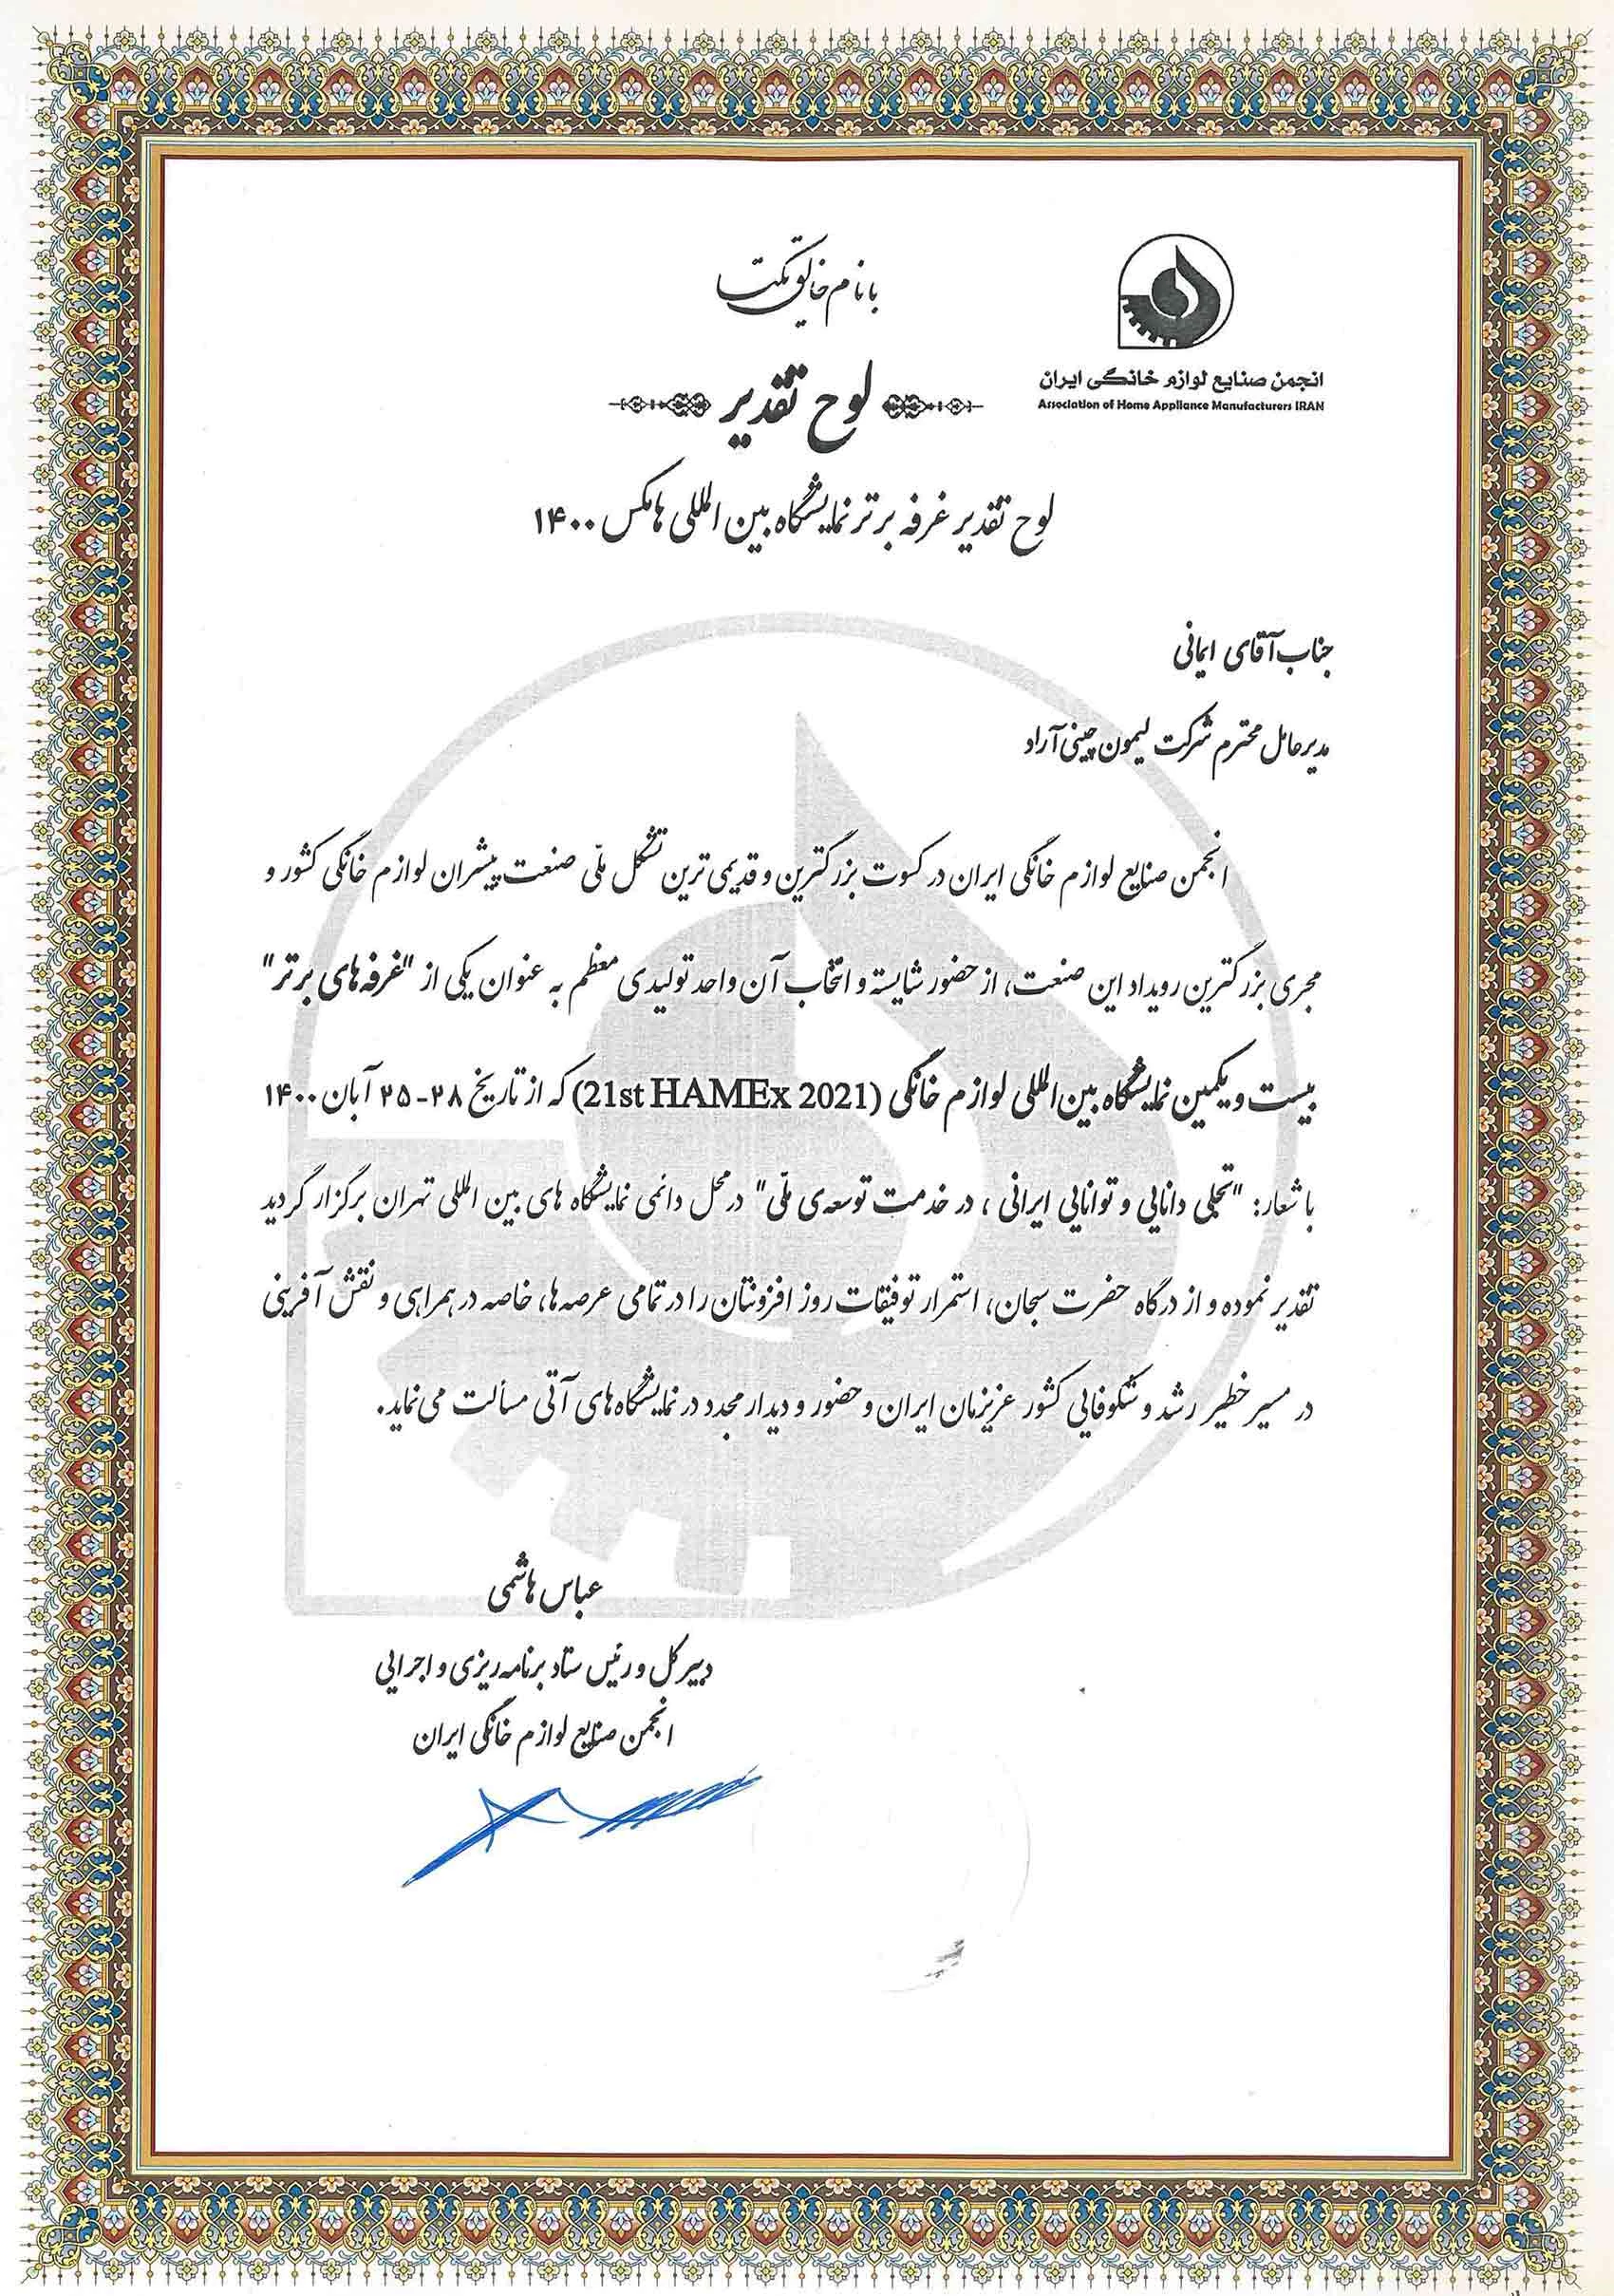 با نام خالق یکتا
انجمن صنایع لوازم خانگی ایران
Association of Home Appliance Manufacturers IRAN
لوح تقدیر
لوح تقدیر غرفه برتر نمایشگاه بین المللی هامکس ۱۴۰۰
جناب آقای ایمانی
مدیرعامل محترم شرکت لیمون چینی آراد
انجمن صنایع لوازم خانگی ایران در کسوت بزرگترین و قدیمی ترین تشکل ملّی صنعت پیشران لوازم خانگی کشور و
مجری بزرگترین رویداد این صنعت، از حضور شایسته و انتخاب آن واحد تولیدی معظم به عنوان یکی از "غرفه های برتر"
بیست و یکمین نمایشگاه بین المللی لوازم خانگی (21st HAMEx 2021) که از تاریخ ۲۸-۲۵ آبان ۱۴۰۰
با شعار: "تجلی دانایی و توانایی ایرانی ، در خدمت توسعه ی ملّی" در محل دائمی نمایشگاه های بین المللی تهران برگزار گردید
تقدیر نموده و از درگاه حضرت سبحان، استمرار توفیقات روز افزونتان را در تمامی عرصه ها، خاصه در همراهی و نقش آفرینی
در مسیر خطیر رشد و شکوفایی کشور عزیزمان ایران و حضور و دیدار مجدد در نمایشگاه های آتی مسألت می نماید.
عباس هاشمی
دبیر کل و رئیس ستاد برنامه ریزی و اجرایی
انجمن صنایع لوازم خانگی ایران